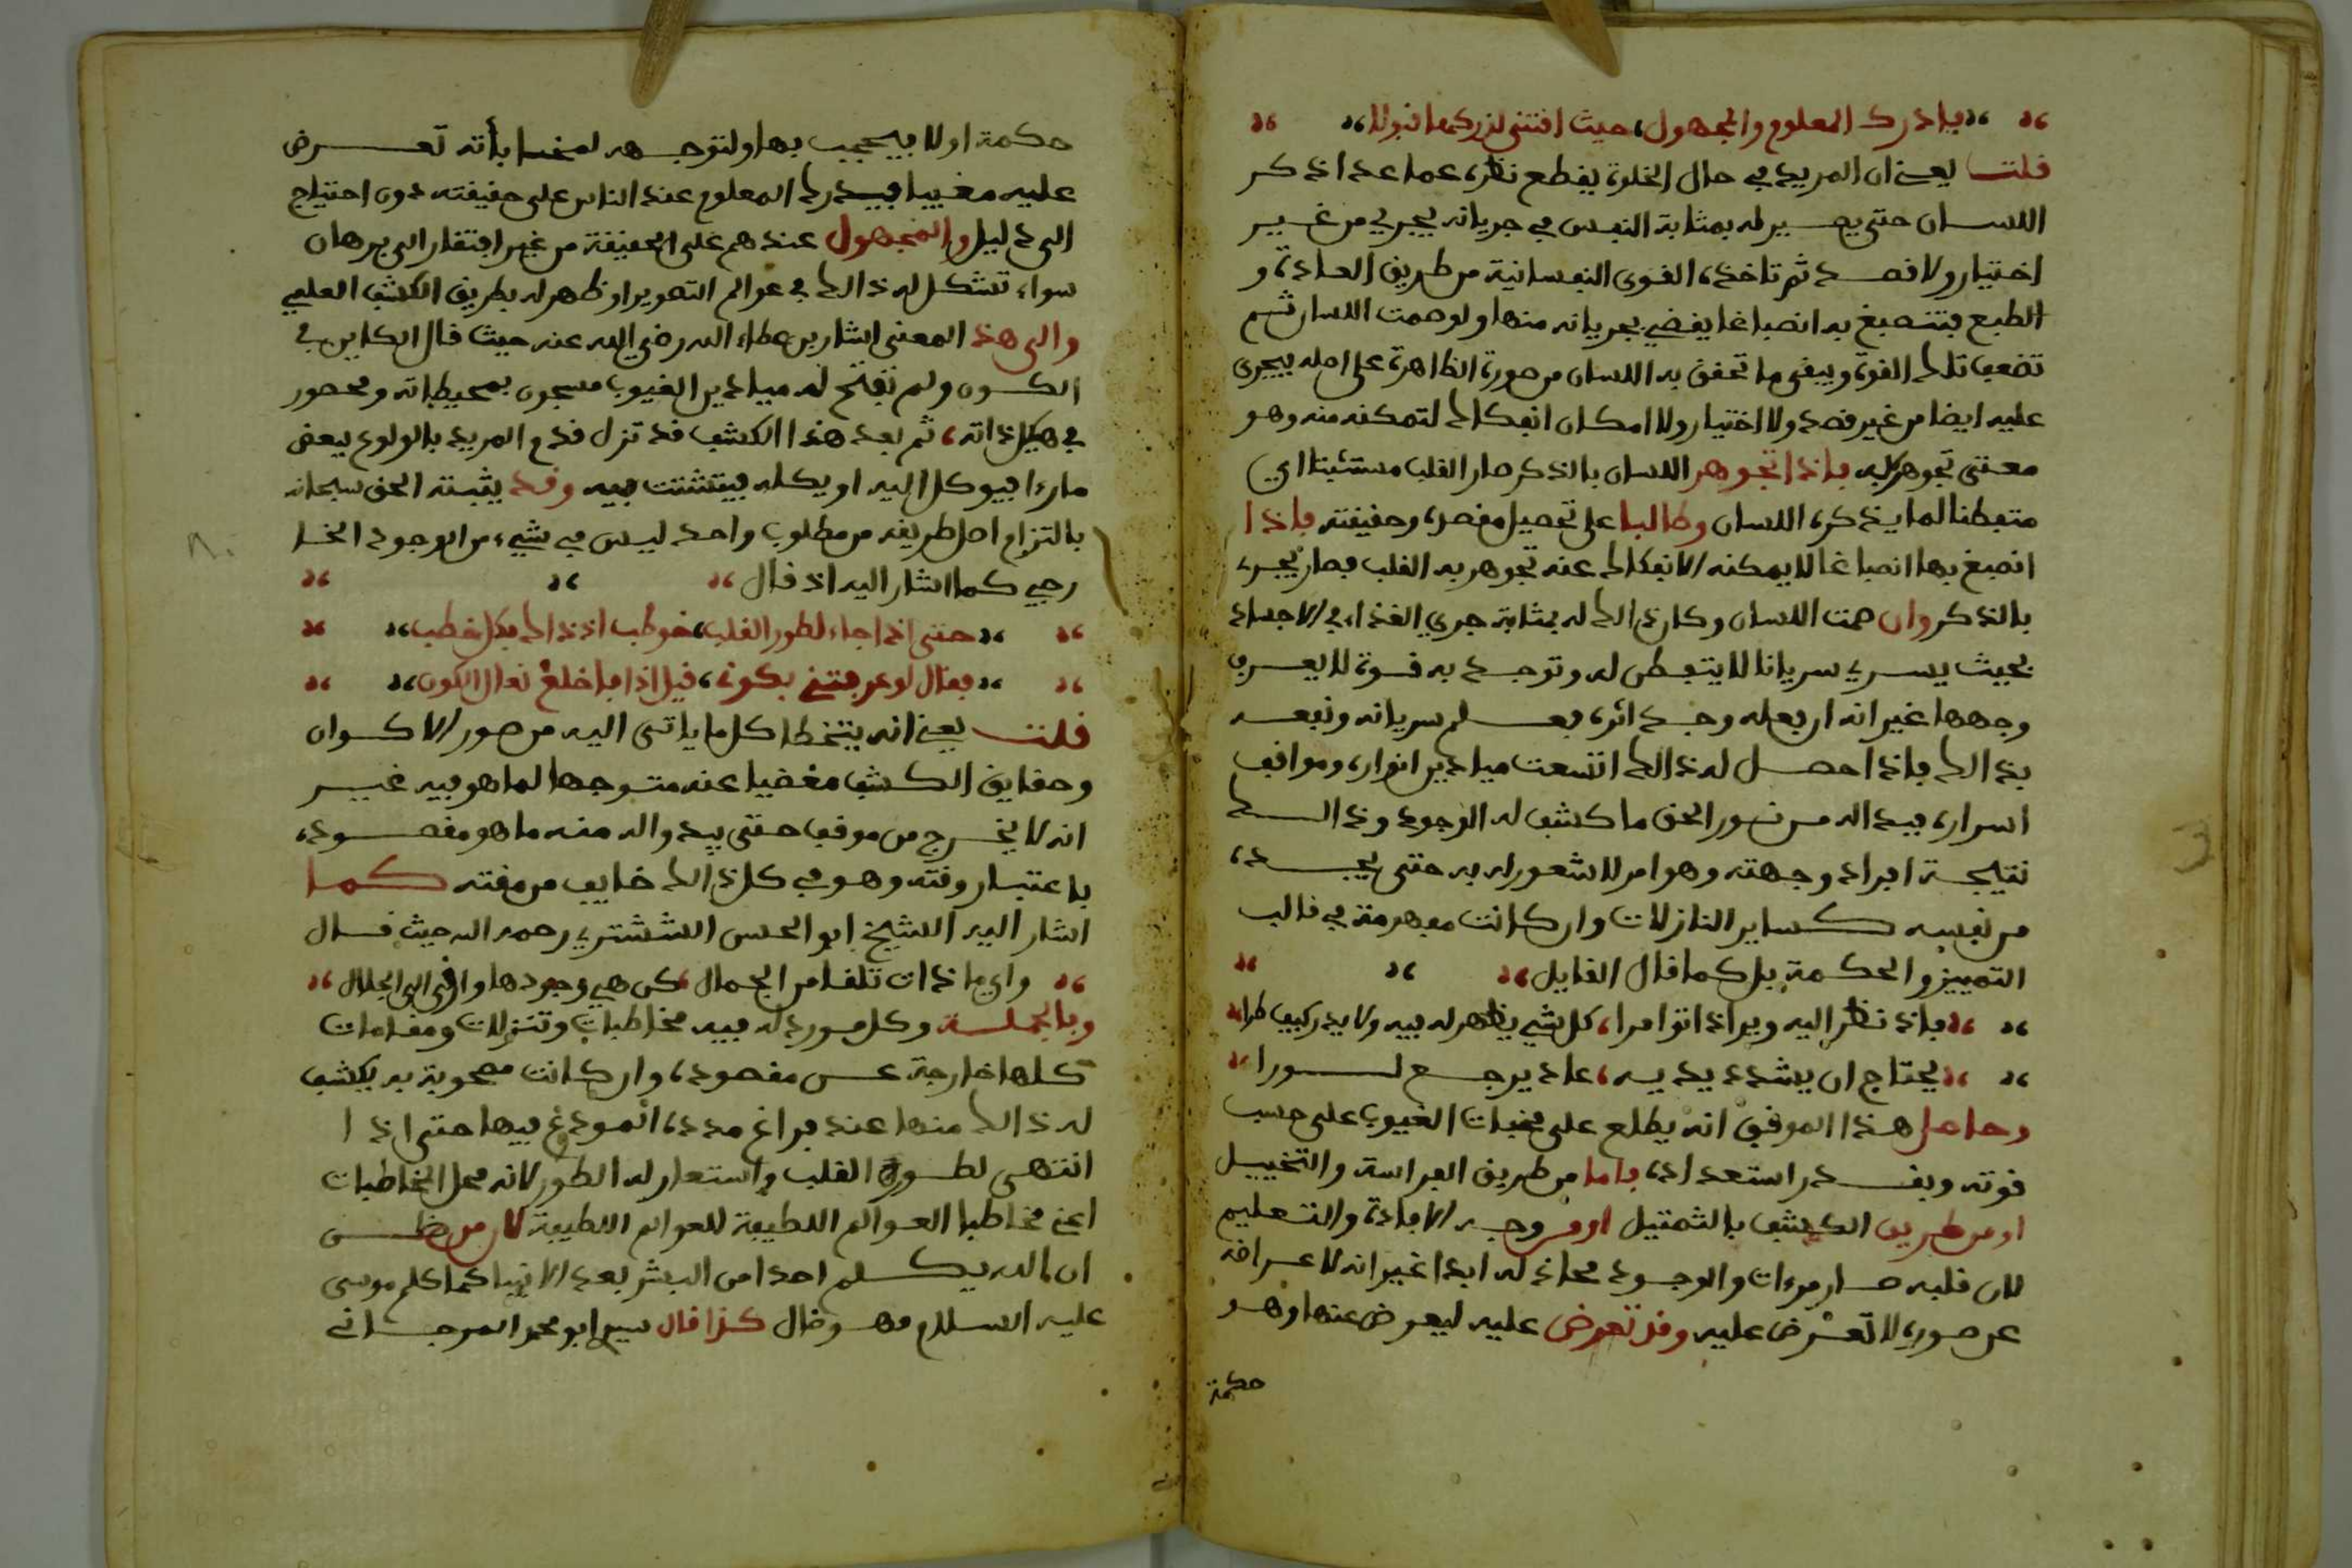 فادرك المعلوم والمجهول، حيث اقتضى لذركهما قبولا
قلت يعني ان المريد في حال الخلوة يقطع نظره عما عدا ذكر
اللسان حتى يصير له بمثابة النفس في جريانه يجري من غير
اختيار ولا قصد ثم تاخذه القوى النفسانية من طريق العادة و
الطبع فتنصبغ به انصباغا يقضي بجريانه منها ولو صمت اللسان ثم
تضعف تلك القوة ويبقى ما تحقق به اللسان من صورة الظاهرة على اصله يجري
عليه ايضا من غير قصد ولا اختيار ولا امكان انفكاك لتمكنه منه وهو
معنى تجوهر به فاذا تجوهر اللسان بالذكر صار القلب مستثبتا اي
متفطنا لما يذكره اللسان وطالبا على تحصيل مقصده وحقيقته فاذا
انصبغ بها انصباغا لا يمكنه الانفكاك عنه تجوهر به القلب فصار يجري
بالذكر وان صمت اللسان وكان ذالك له بمثابة جري الغذاء في الاجساد
بحيث يسري سريانا لا يتفطن له وتوجد به قوة لا يعرف
وجهها غير انه ان فعله وجد اثره فعلم سريانه ونفعه
بذالك فاذا حصل له ذالك اتسعت ميادين انواره ومواقف
اسراره فبدا له من نور الحق ما كشف له الوجود وذالك
نتيجة افراد وجهته وهو امر لا شعور له به حتى يجده
من نفسه كساير النازلات وان كانت مفهرمة في قالب
التمييز والحكمة بل كما قال القايل
فاذ نظر اليه ويراذ اتوامرا، كل شي يظهر له فيه ولا يدر كيف طرا
يحتاج ان يشدد يديه، عاد يرجع لورا
وحاصل هذا الموقف انه يطلع على مخبات الغيوب على حسب
قوته وبقدر استعداده فاما من طريق الفراسة والتخييل
او من طريق الكشف بالتمثيل او من وجه الافادة والتعليم
لان قلبه صار مرءات والوجود محاذ له ابدا غير انه لاعراضه
عن صوره لا تعرض عليه وقد تعرض عليه ليعرض عنها وهو
حكمة
حكمة اولا فيحجب بها ولتوجهه لمخبا بأنه تعرض
عليه مغيبا فيدرك المعلوم عند الناس على حقيقته دون احتياج
الى دليل والمجهول عندهم على الحقيقة من غير افتقار الى برهان
سواء تشكل له ذالك في عوالم التصوير او ظهر له بطريق الكشف العلمي
والى هذا المعنى اشار بن عطاء الله رضي الله عنه حيث قال الكاين في
الكون ولم تفتح له ميادين الغيوب مسجون بمحيطاته ومحصور
في هيكل ذاته، ثم بعد هذا الكشف قد تزل قدم المريد بالولوع ببعض
ما رءا فيوكل اليه او يكله فيتشتت فيه وقد يثبته الحق سبحانه
بالتزام اصل طريقه من مطلوب واحد ليس في شيء من الوجود الخا
رجي كما اشار اليه اذ قال
حتى اذا جاء لطور القلب، خوطب اذ ذاك بكل خطب
فقال لو عرفتني بكونه، قيل اذا فاخلع نعال الكون
قلت يعني انه يتخطا كل ما ياتي اليه من صور الاكوان
وحقايق الكشف مغضيا عنه متوجها لما هو فيه غير
انه لا يخرج من موقف حتى يبدوا له منه ما هو مقصوده
باعتبار وقته وهو في كل ذالك خايف من مقته كما
اشار اليه الشيخ ابو الحسن الششتري رحمه الله حيث قال
واي ما ذات تلقا من الجمال، كن هي وجودها وارقى الى الجلال
وبالجملة وكل مورد له فيه مخاطبات وتنزلات ومقامات
كلها خارجة عن مقصوده وان كانت مصحوبة به يكشف
له ذالك منها عند فراغ مدده المودع فيها حتى اذا
انتهى لطور القلب واستعار له الطور لانه محل المخاطبات
اعني مخاطبا العوالم اللطيفة للعوالم اللطيفة لان من ظن
ان الله يكلم احدا من البشر بعد الانبيا كما كلم موسى
عليه السلام فهو ضال كذا قال سيدي ابو محمد المرجاني